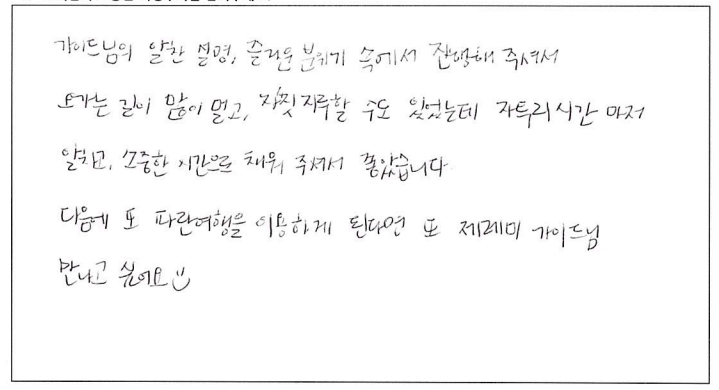 가이드님의 알찬 설명, 즐거운 분위기 속에서 진행해 주셔서
오가는 길이 많이 멀고, 자칫 지루할 수도 있었는데 자투리시간 마저
알차고, 소중한 시간으로 채워 주셔서 좋았습니다.
다음에 또 파란여행을 이용하게 된다면 또 제레미 가이드님
만나고 싶어요